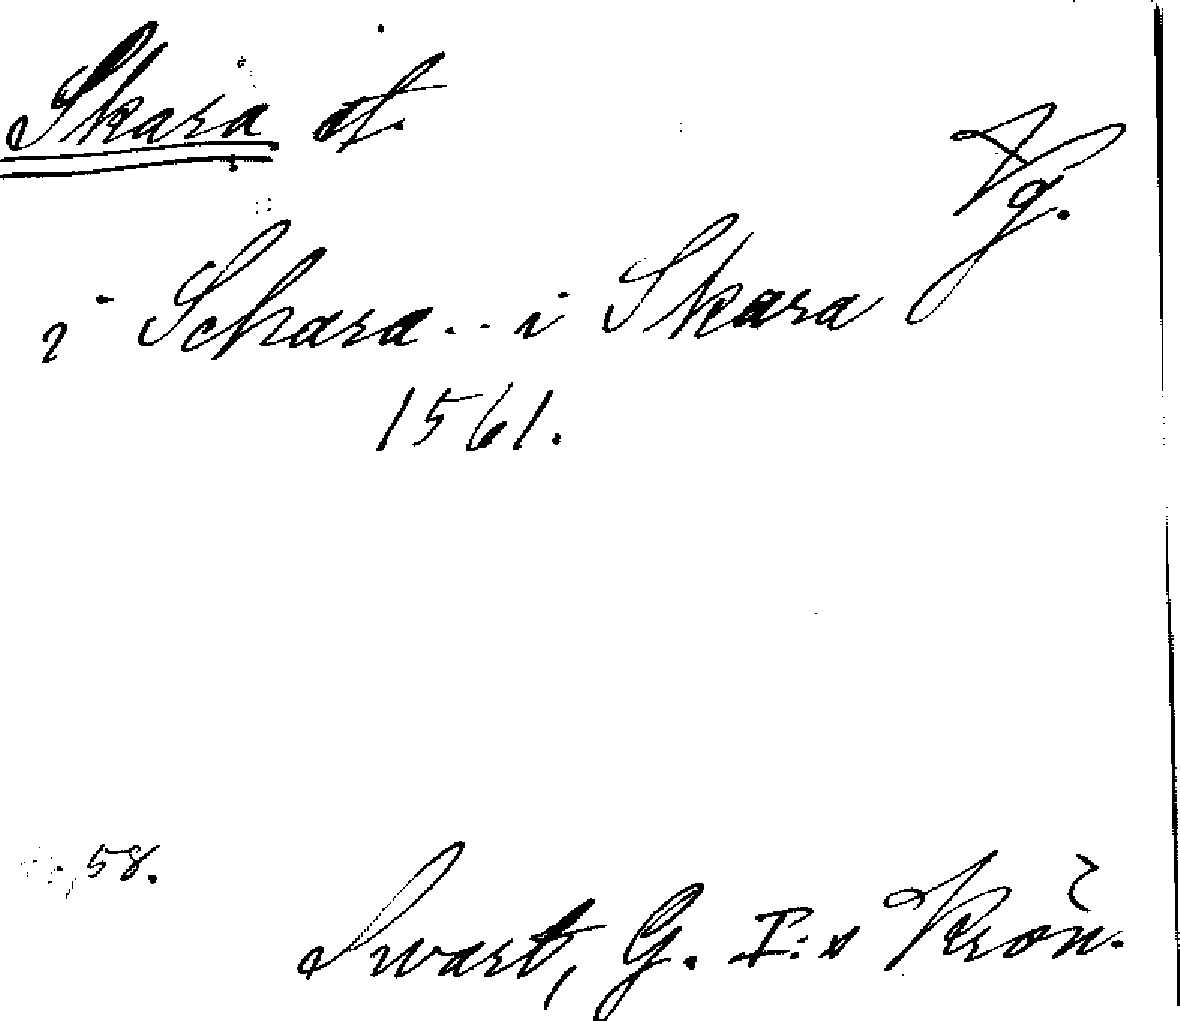 Skara st.
Vg.
i Schara.. i Skara
1561.
58.
Swart, G. I:s Krön.